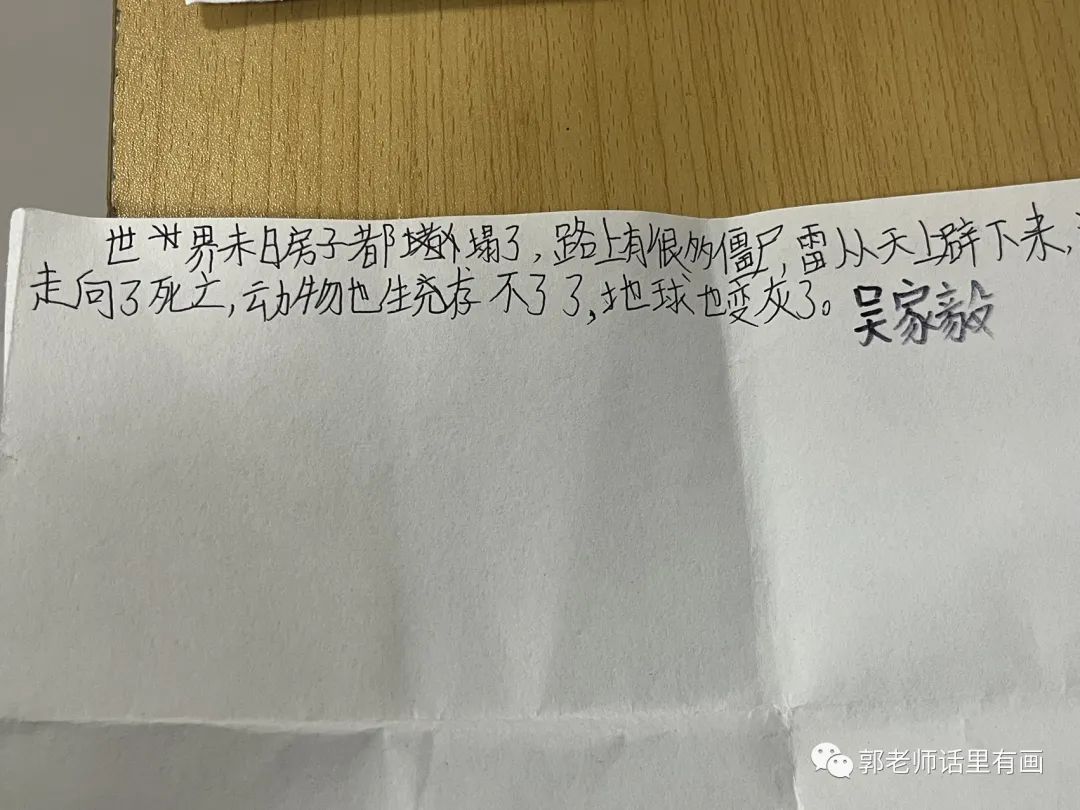 世界末日房子都塌了，路上有很多僵尸，雷从天上辟下来，
走向了死亡，动物也生存不了了，地球也变灰了。吴家毅
郭老师话里有画